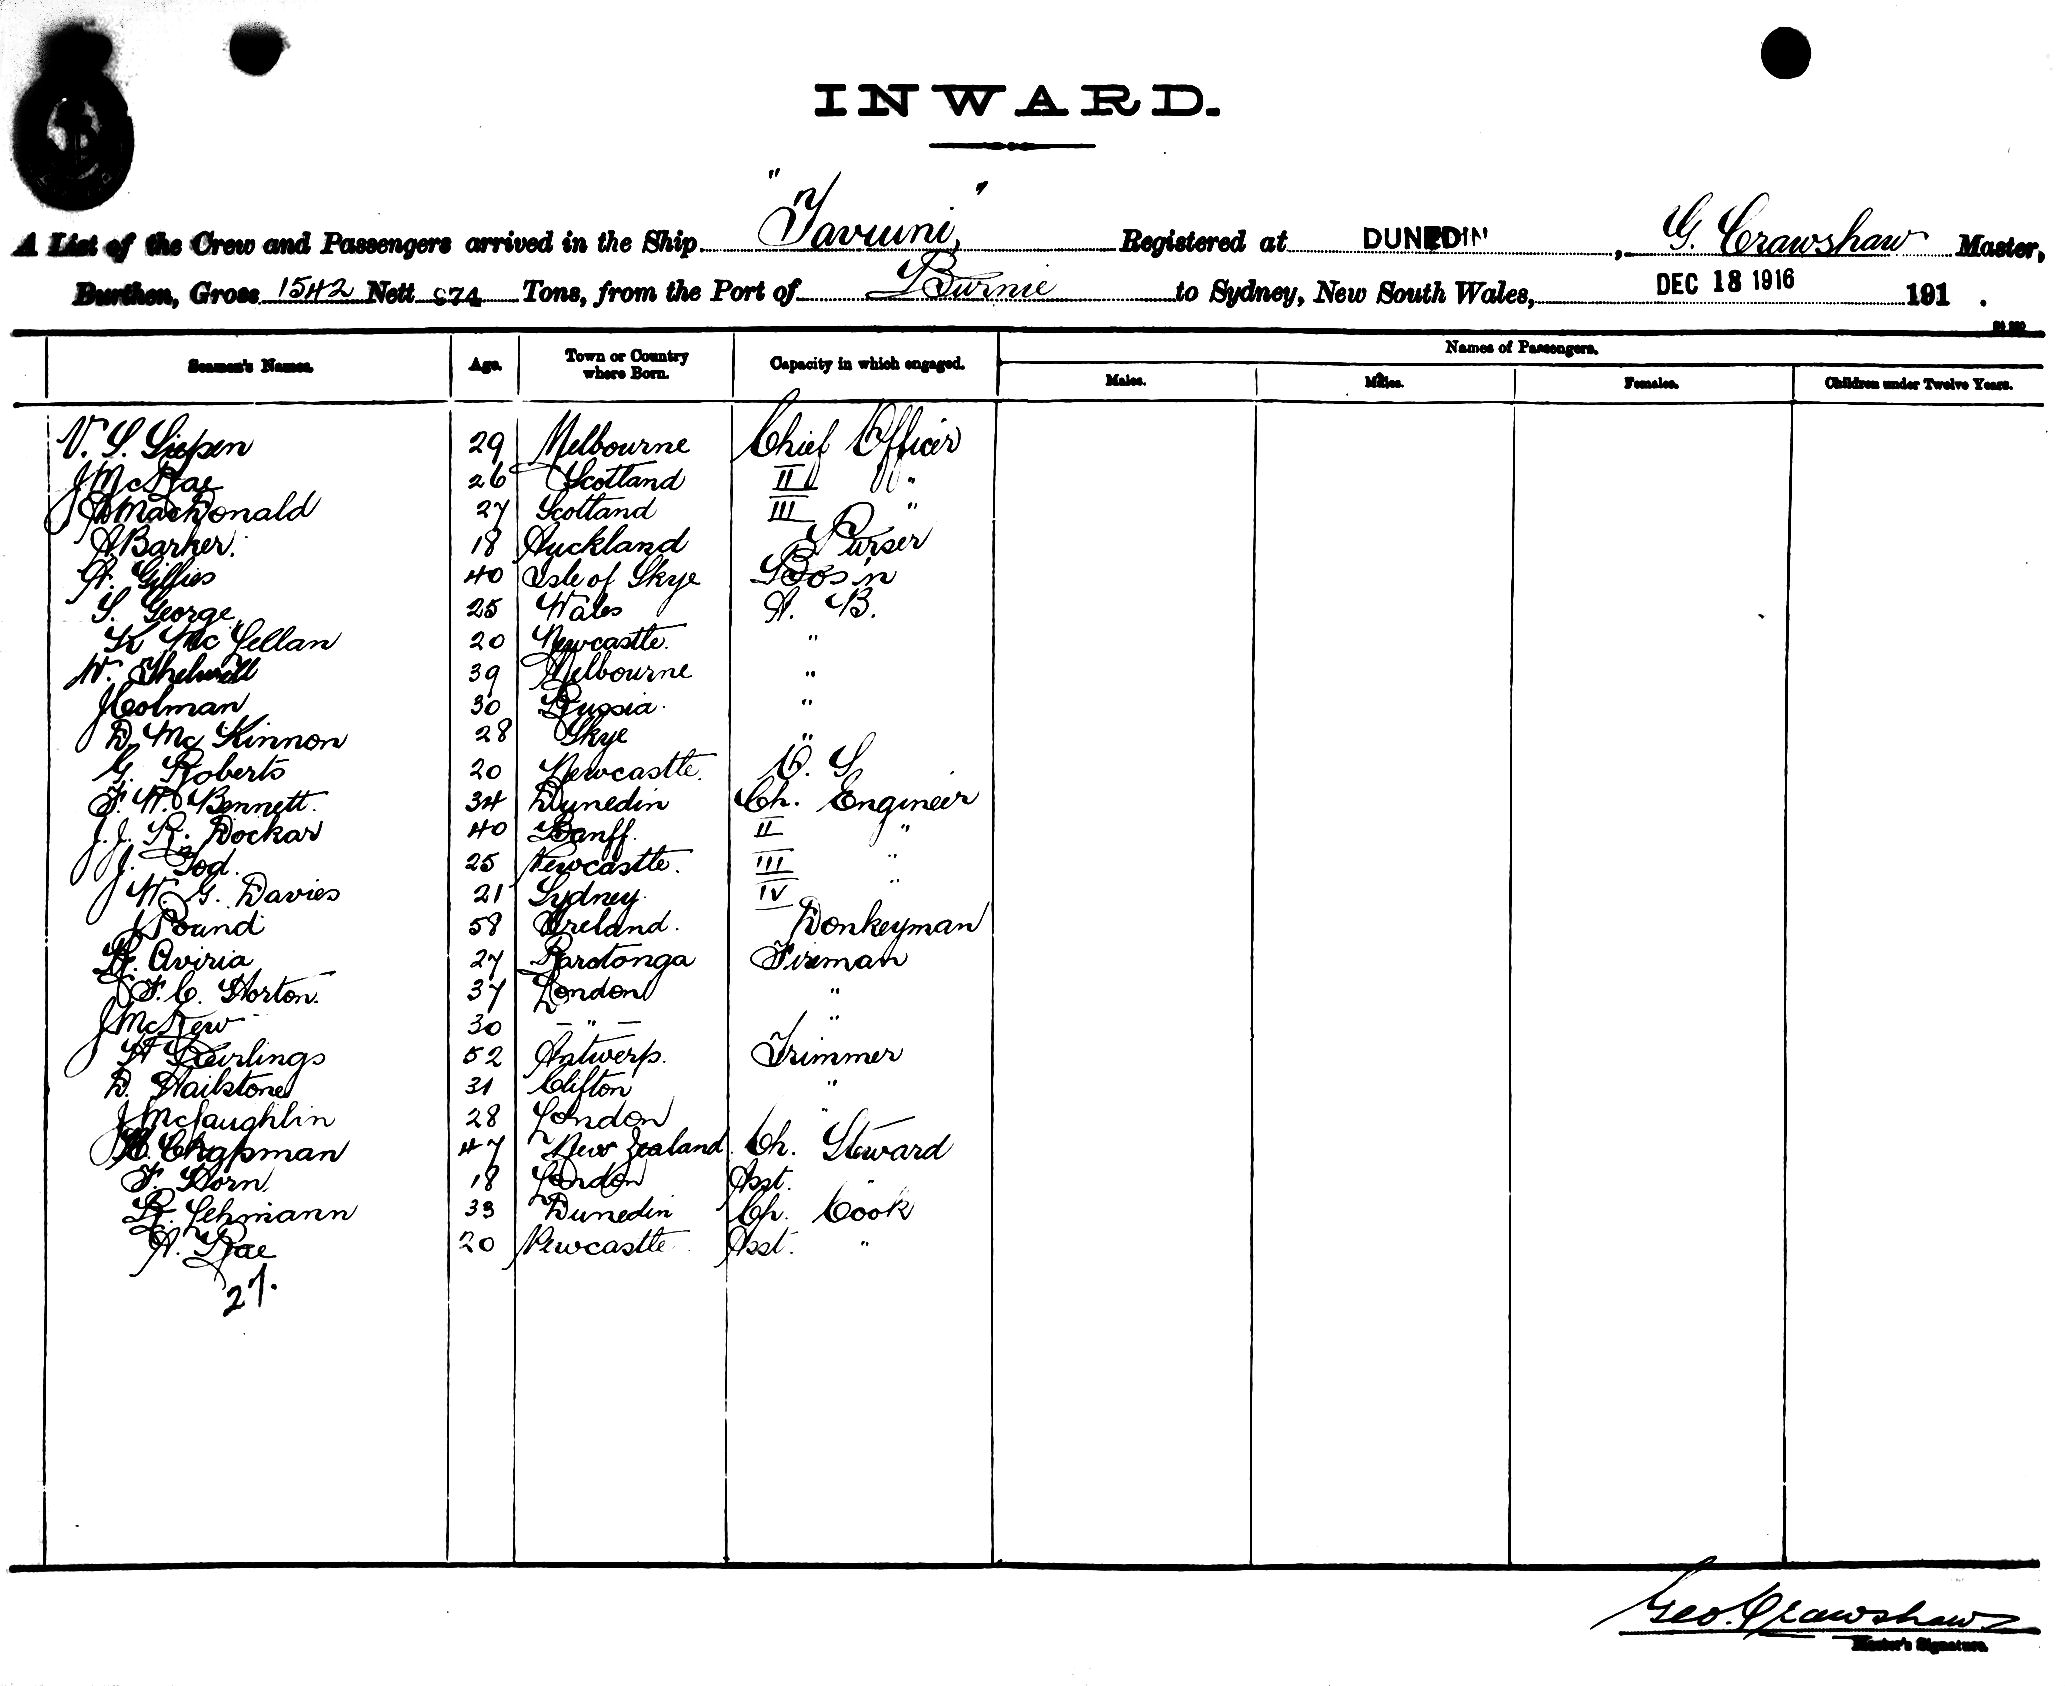 INWARD.
A List of the Crew and Passengers arrived in the Ship "Taviuni," Registered at DUNEDIN, G. Crawshaw Master,
Burthen, Gross 1542 Nett 874 Tons, from the Port of Burnie to Sydney, New South Wales, DEC 18 1916 191 .
Seamen's Names. Age. Town or Country where Born. Capacity in which engaged. Names of Passengers.
Males. Males. Females. Children under Twelve Years.
V. S. Liepen 29 Melbourne Chief Officer
J McRae 26 Scotland II "
A MacDonald 27 Scotland III "
A Barker. 18 Auckland Purser
A. Gillies 40 Isle of Skye Bos'n
S. George 25 Wales A. B.
K McLellan 20 Newcastle. "
W. Thelwell 39 Melbourne "
J Colman 30 Russia. "
D McKinnon 28 Skye "
G. Roberts 20 Newcastle. O. S
F. W. Bennett. 34 Dunedin Ch. Engineer
J. J. R. Dockar 40 Banff. II "
J. Tod. 25 Newcastle. III "
W. G. Davies 21 Sydney. IV "
J Pound 58 Ireland. Donkeyman
R. Aviria 27 Rarotonga Fireman
F. C. Horton. 37 London "
J McKew 30 — " — "
A Geirlings 52 Antwerp. Trimmer
D. Hailstone 31 Clifton "
J McLaughlin 28 London "
Chapman 47 New Zealand. Ch. Steward
F. Horn 18 London Asst. "
R. Lehmann 33 Dunedin Ch. Cook
A. Rae 20 Newcastle Asst. "
27.
Geo. Crawshaw
Master's Signature.